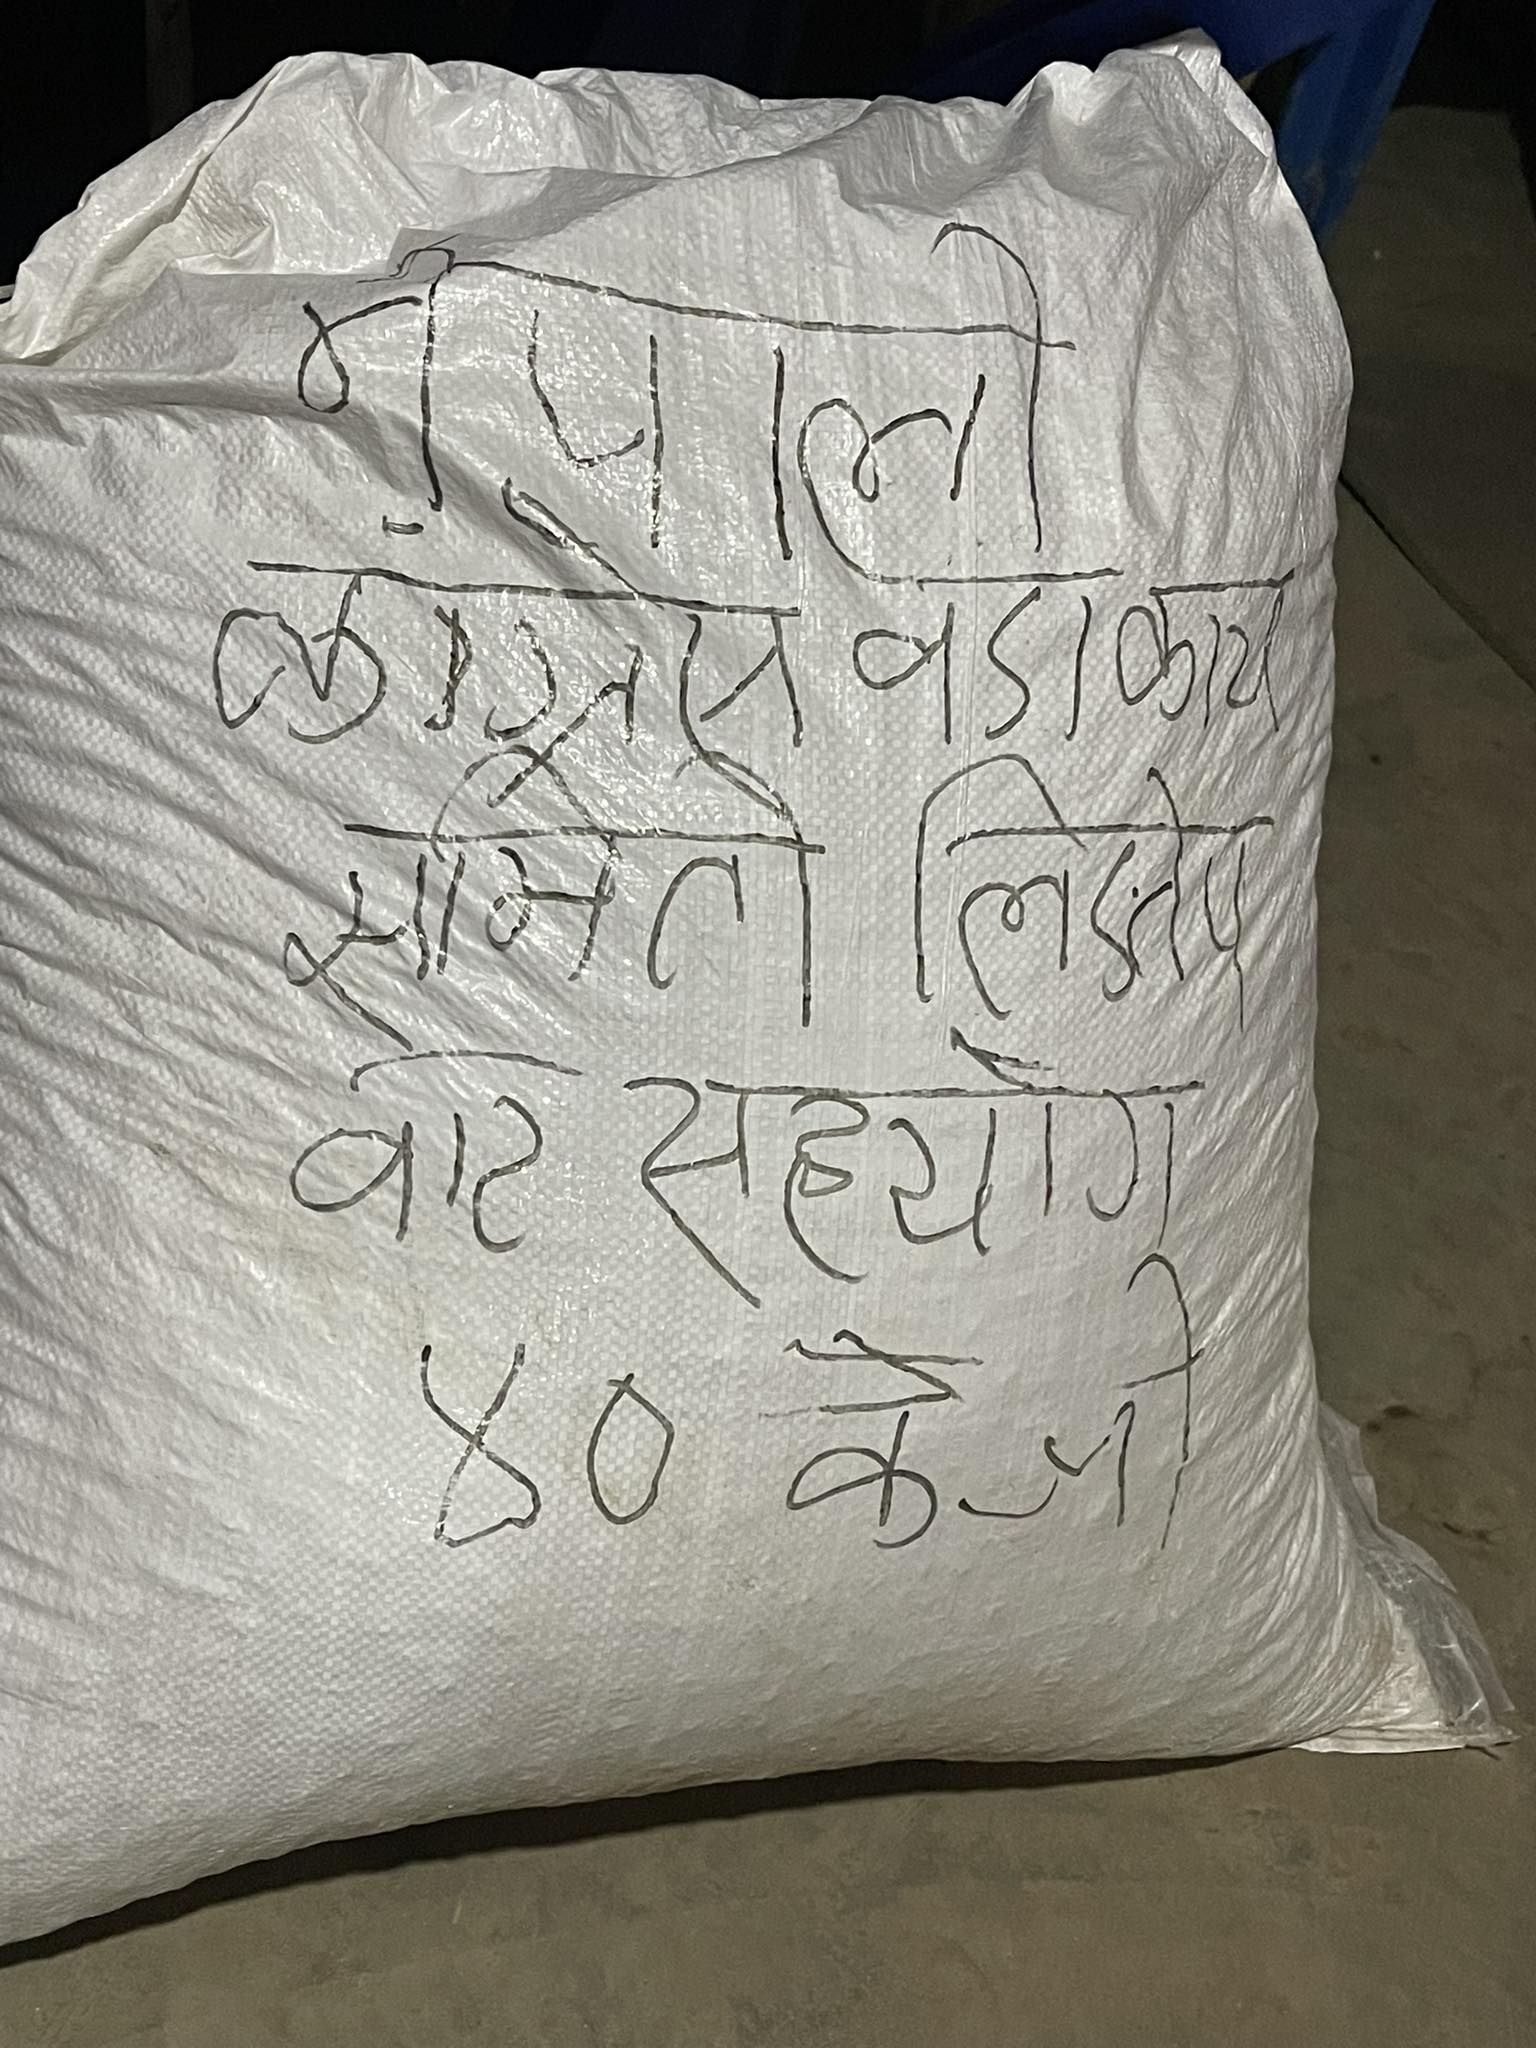 नेपाली
काङग्रेस वडा कार्य
समिती लिङदेप
वाट सहयोग
४० के.जी